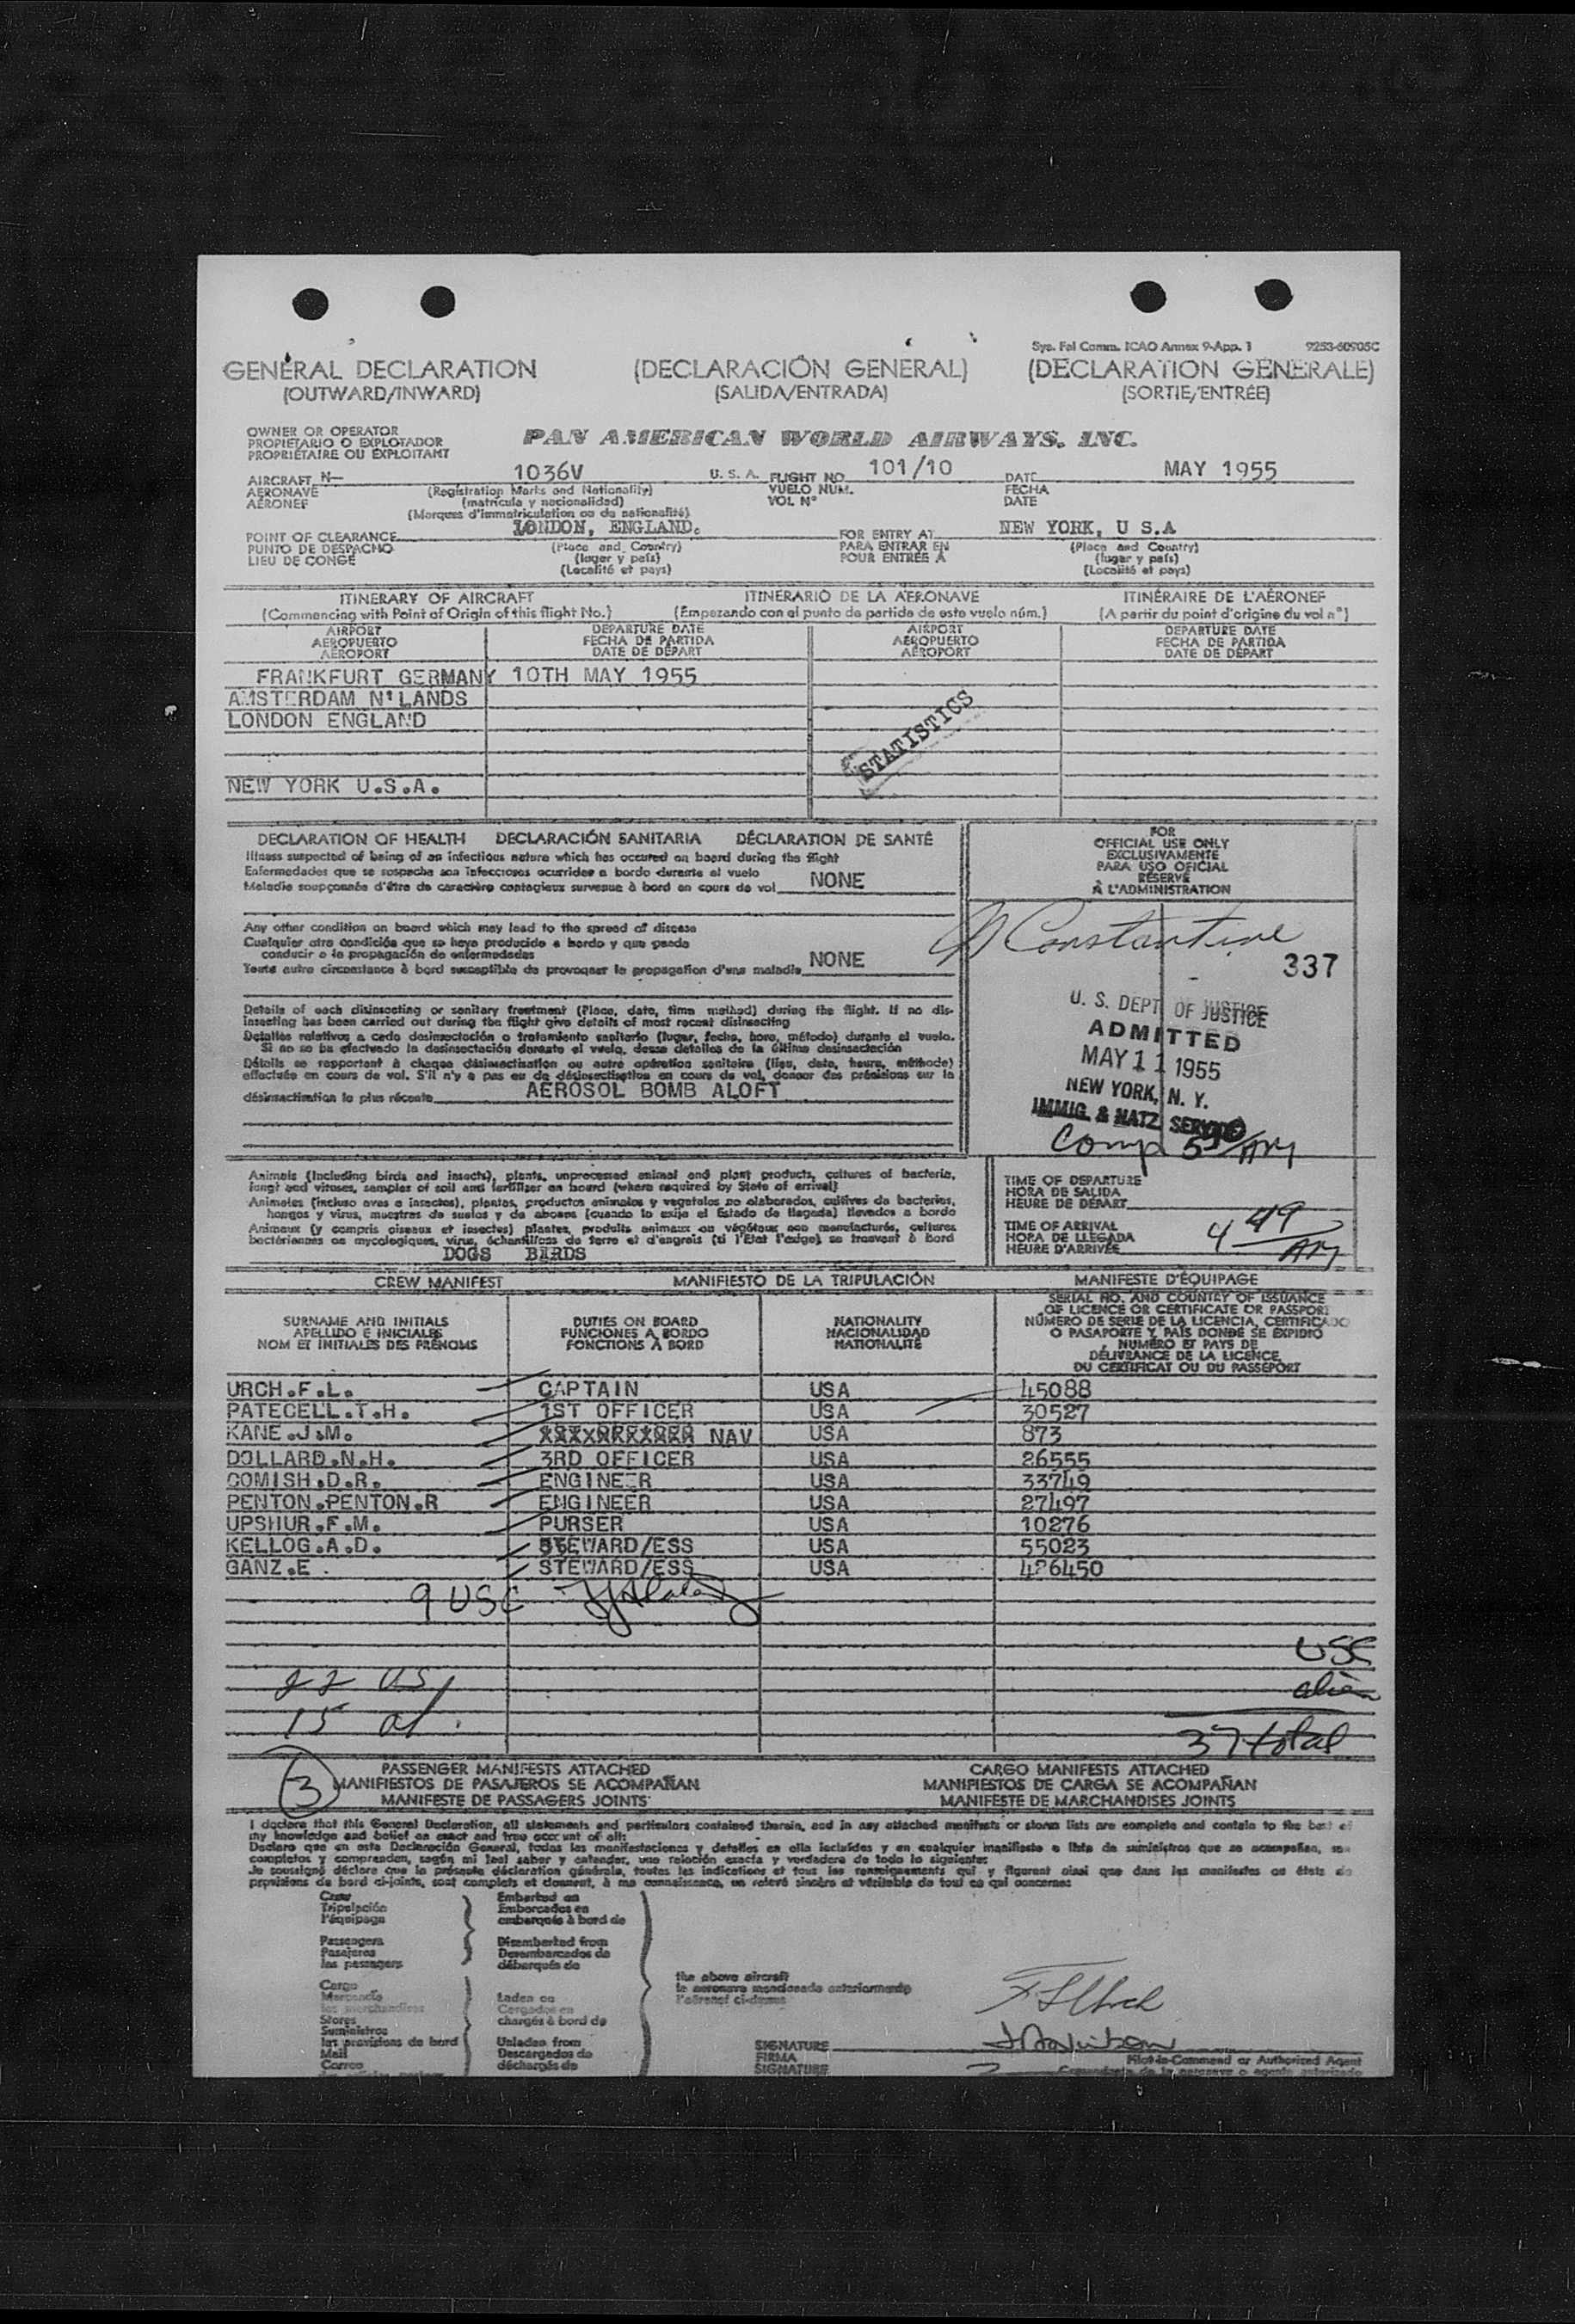 Sys. Fal Comm. ICAO Annex 9-App. 1 9253-60905C
GENERAL DECLARATION (DECLARACIÓN GENERAL) (DECLARATION GÉNERALE)
(OUTWARD/INWARD) (SALIDA/ENTRADA) (SORTIE/ENTRÉE)
OWNER OR OPERATOR
PROPIETARIO O EXPLOTADOR
PROPRIÉTAIRE OU EXPLOITANT
PAN AMERICAN WORLD AIRWAYS, INC.
AIRCRAFT N— 1036V U. S. A. FLIGHT NO. 101/10 DATE MAY 1955
AERONAVE (Registration Marks and Nationality) VUELO NUM. FECHA
AÉRONEF (matrícula y nacionalidad) VOL N° DATE
(Marques d'immatriculation ou de nationalité)
POINT OF CLEARANCE LONDON, ENGLAND. FOR ENTRY AT NEW YORK, U S.A
PUNTO DE DESPACHO (Place and Country) PARA ENTRAR EN (Place and Country)
LIEU DE CONGÉ (lugar y país) POUR ENTRÉE À (lugar y país)
(Localité et pays) (Localité et pays)
ITINERARY OF AIRCRAFT ITINERARIO DE LA AERONAVE ITINÉRAIRE DE L'AÉRONEF
(Commencing with Point of Origin of this flight No.) (Empezando con el punto de partida de este vuelo núm.) (A partir du point d'origine du vol n°)
AIRPORT DEPARTURE DATE AIRPORT DEPARTURE DATE
AEROPUERTO FECHA DE PARTIDA AEROPUERTO FECHA DE PARTIDA
AÉROPORT DATE DE DÉPART AÉROPORT DATE DE DÉPART
FRANKFURT GERMANY 10TH MAY 1955
AMSTERDAM N'LANDS
LONDON ENGLAND
STATISTICS
NEW YORK U.S.A.
DECLARATION OF HEALTH DECLARACIÓN SANITARIA DÉCLARATION DE SANTÉ
Illness suspected of being of an infectious nature which has occured on board during the flight
Enfermedades que se sospecha son infecciosas ocurridas a bordo durante el vuelo
Maladie soupçonnée d'être de caractère contagieux survenue à bord en cours de vol NONE
Any other condition on board which may lead to the spread of disease
Cualquier otra condición que se haya producido a bordo y que pueda
conducir a la propagación de enfermedades
Toute autre circonstance à bord susceptible de provoquer la propagation d'une maladie NONE
Details of each disinsecting or sanitary treatment (Place, date, time method) during the flight. If no dis-
insecting has been carried out during the flight give details of most recent disinsecting
Detalles relativos a cada desinsectación o tratamiento sanitario (lugar, fecha, hora, método) durante el vuelo.
Si no se ha efectuado la desinsectación durante el vuelo, dense detalles de la última desinsectación
Détails se rapportant à chaque désinsectisation ou autre opération sanitaire (lieu, date, heure, méthode)
effectuée en cours de vol. S'il n'y a pas eu de désinsectisation en cours de vol, donner des précisions sur la
désinsectisation la plus récente AEROSOL BOMB ALOFT
FOR
OFFICIAL USE ONLY
EXCLUSIVAMENTE
PARA USO OFICIAL
RÉSERVÉ
À L'ADMINISTRATION
Constantine
337
U. S. DEPT OF JUSTICE
ADMITTED
MAY 11 1955
NEW YORK, N. Y.
IMMIG. & NATZ. SERVICE
Comp AM
Animals (including birds and insects), plants, unprocessed animal and plant products, cultures of bacteria,
fungi and viruses, samples of soil and fertiliser on board (where required by State of arrival)
Animales (incluso aves e insectos), plantas, productos animales y vegetales no elaborados, cultivos de bacterias,
hongos y virus, muestras de suelos y de abonos (cuando lo exija el Estado de llegada) llevados a bordo
Animaux (y compris oiseaux et insectes) plantes, produits animaux ou végétaux non manufacturés, cultures
bactériennes ou mycologiques, virus, échantillons de terre et d'engrais (si l'État l'exige) se trouvant à bord
DOGS BIRDS
TIME OF DEPARTURE
HORA DE SALIDA
HEURE DE DÉPART
TIME OF ARRIVAL
HORA DE LLEGADA
HEURE D'ARRIVÉE
4 49 AM
CREW MANIFEST MANIFIESTO DE LA TRIPULACIÓN MANIFESTE D'ÉQUIPAGE
SURNAME AND INITIALS
APELLIDO E INICIALES
NOM ET INITIALES DES PRÉNOMS
DUTIES ON BOARD
FUNCIONES A BORDO
FONCTIONS À BORD
NATIONALITY
NACIONALIDAD
NATIONALITÉ
SERIAL NO. AND COUNTRY OF ISSUANCE
OF LICENCE OR CERTIFICATE OR PASSPORT
NÚMERO DE SERIE DE LA LICENCIA, CERTIFICADO
O PASAPORTE Y PAÍS DONDE SE EXPIDIÓ
NUMÉRO ET PAYS DE
DÉLIVRANCE DE LA LICENCE,
DU CERTIFICAT OU DU PASSEPORT
URCH.F.L. CAPTAIN USA 45088
PATECELL.T.H. 1ST OFFICER USA 30527
KANE.J.M. NAV USA 873
DOLLARD.N.H. 3RD OFFICER USA 26555
COMISH.D.R. ENGINEER USA 33749
PENTON.PENTON.R ENGINEER USA 27497
UPSHUR.F.M. PURSER USA 10276
KELLOG.A.D. STEWARD/ESS USA 55023
GANZ.E. STEWARD/ESS USA 426450
9 USC
USC
22 US
alien
15 al.
37 total
3
PASSENGER MANIFESTS ATTACHED CARGO MANIFESTS ATTACHED
MANIFIESTOS DE PASAJEROS SE ACOMPAÑAN MANIFIESTOS DE CARGA SE ACOMPAÑAN
MANIFESTE DE PASSAGERS JOINTS MANIFESTE DE MARCHANDISES JOINTS
I declare that this General Declaration, all statements and particulars contained therein, and in any attached manifests or stores lists are complete and contain to the best of
my knowledge and belief an exact and true account of all:
Declaro que en esta Declaración General, todas las manifestaciones y detalles en ella incluídos y en cualquier manifiesto o lista de suministros que se acompañan, son
completos y comprenden, según mi leal saber y entender, una relación exacta y verdadera de todo lo siguiente:
Je soussigné déclare que la présente déclaration générale, toutes les indications et tous les renseignements qui y figurent ainsi que dans les manifestes ou états de
provisions de bord ci-joints, sont complets et donnent, à ma connaissance, un relevé sincère et véritable de tout ce qui concerne:
Crew Embarked on
Tripulación Embarcados en
l'équipage embarqués à bord de
Passengers Disembarked from
Pasajeros Desembarcados de
les passagers débarqués de
the above aircraft
la aeronave mencionada anteriormente
l'aéronef ci-dessus
Cargo
Mercancía Laden on
les marchandises Cargados en
Stores chargés à bord de
Suministros
les provisions de bord Unladen from
Mail Descargados de
Correo déchargés de
F L Urch
SIGNATURE
FIRMA
SIGNATURE
Pilot-in-Command or Authorized Agent
Comandante de la aeronave o agente autorizado